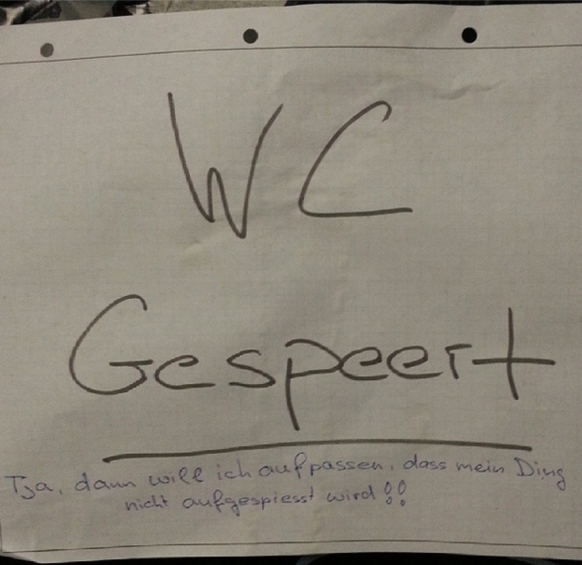 WC
Gespeert
Tja, dann will ich aufpassen, dass mein Ding
nicht aufgespiesst wird!!